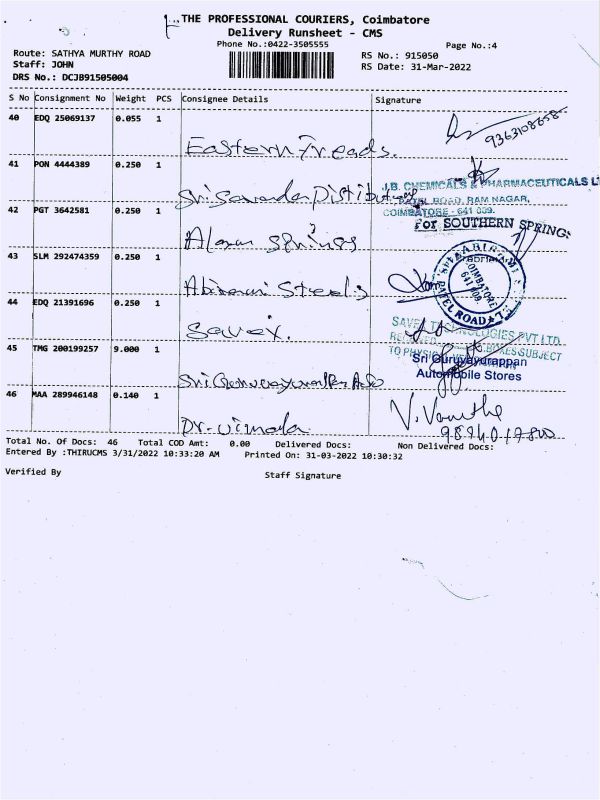 THE PROFESSIONAL COURIERS, Coimbatore
Delivery Runsheet - CMS
Phone No.:0422-3505555
Page No.:4
Route: SATHYA MURTHY ROAD
RS No.: 915050
Staff: JOHN
RS Date: 31-Mar-2022
DRS No.: DCJB91505004
S No Consignment No Weight PCS Consignee Details Signature
40 EDQ 25069137 0.055 1
9363108658
Eastern Treads.
41 PON 4444389 0.250 1
J.B. CHEMICALS & PHARMACEUTICALS LT
Sri Distributors
PATEL ROAD, RAM NAGAR,
42 PGT 3642581 0.250 1
COIMBATORE - 641 009.
For SOUTHERN SPRINGS
Springs
43 SLM 292474359 0.250 1
COIMBATORE
641 009
PATEL ROAD
Abirami Steels
44 EDQ 21391696 0.250 1
SAVEX TECHNOLOGIES PVT LTD
Savex.
RECEIVED BOXES SUBJECT
45 TMG 200199257 9.000 1
TO PHYSICAL VERIFICATION
Sri Guruvayurappan
Automobile Stores
Sri Auto
46 MAA 289946148 0.140 1
Dr. Vimala
Total No. Of Docs: 46 Total COD Amt: 0.00 Delivered Docs: Non Delivered Docs:
Entered By :THIRUCMS 3/31/2022 10:33:20 AM Printed On: 31-03-2022 10:30:32
Verified By
Staff Signature